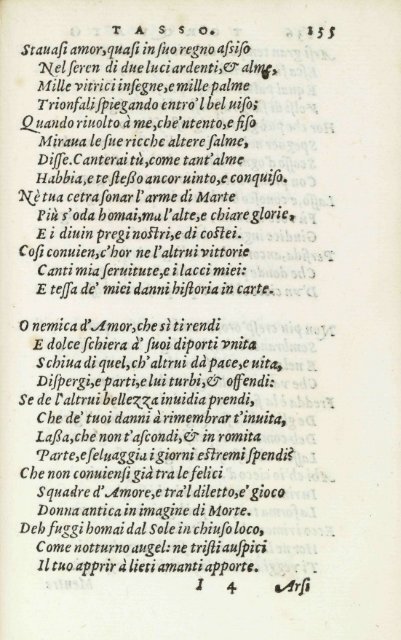 TASSO. 155
Stauasi amor, quasi in suo regno assiso
Nel seren di due luci ardenti, & alme,
Mille vitrici insegne, e mille palme
Trionfali spiegando entro'l bel uiso;
Quando riuolto à me, che'ntento, e fiso
Miraua le sue ricche altere salme,
Disse. Canterai tù, come tant'alme
Habbia, e te stesso ancor uinto, e conquiso.
Nè tua cetra sonar l'arme di Marte
Più s'oda homai, ma l'alte, e chiare glorie,
E i diuin pregi nostri, e di costei.
Cosi conuien, c'hor ne l'altrui vittorie
Canti mia seruitute, e i lacci miei:
E tessa de' miei danni historia in carte.
O nemica d'Amor, che sì ti rendi
E dolce schiera à suoi diporti vnita
Schiua di quel, ch'altrui dà pace, e uita,
Dispergi, e parti, e lui turbi, & offendi:
Se de l'altrui bellezza inuidia prendi,
Che de' tuoi danni à rimembrar t'inuita,
Lassa, che non t'ascondi, & in romita
Parte, e seluaggia i giorni estremi spendi?
Che non conuiensi già tra le felici
Squadre d'Amore, e tra'l diletto, e'gioco
Donna antica in imagine di Morte.
Deh fuggi homai dal Sole in chiuso loco,
Come notturno augel: ne tristi auspici
Il tuo apprir à lieti amanti apporte.
I 4 Arsi